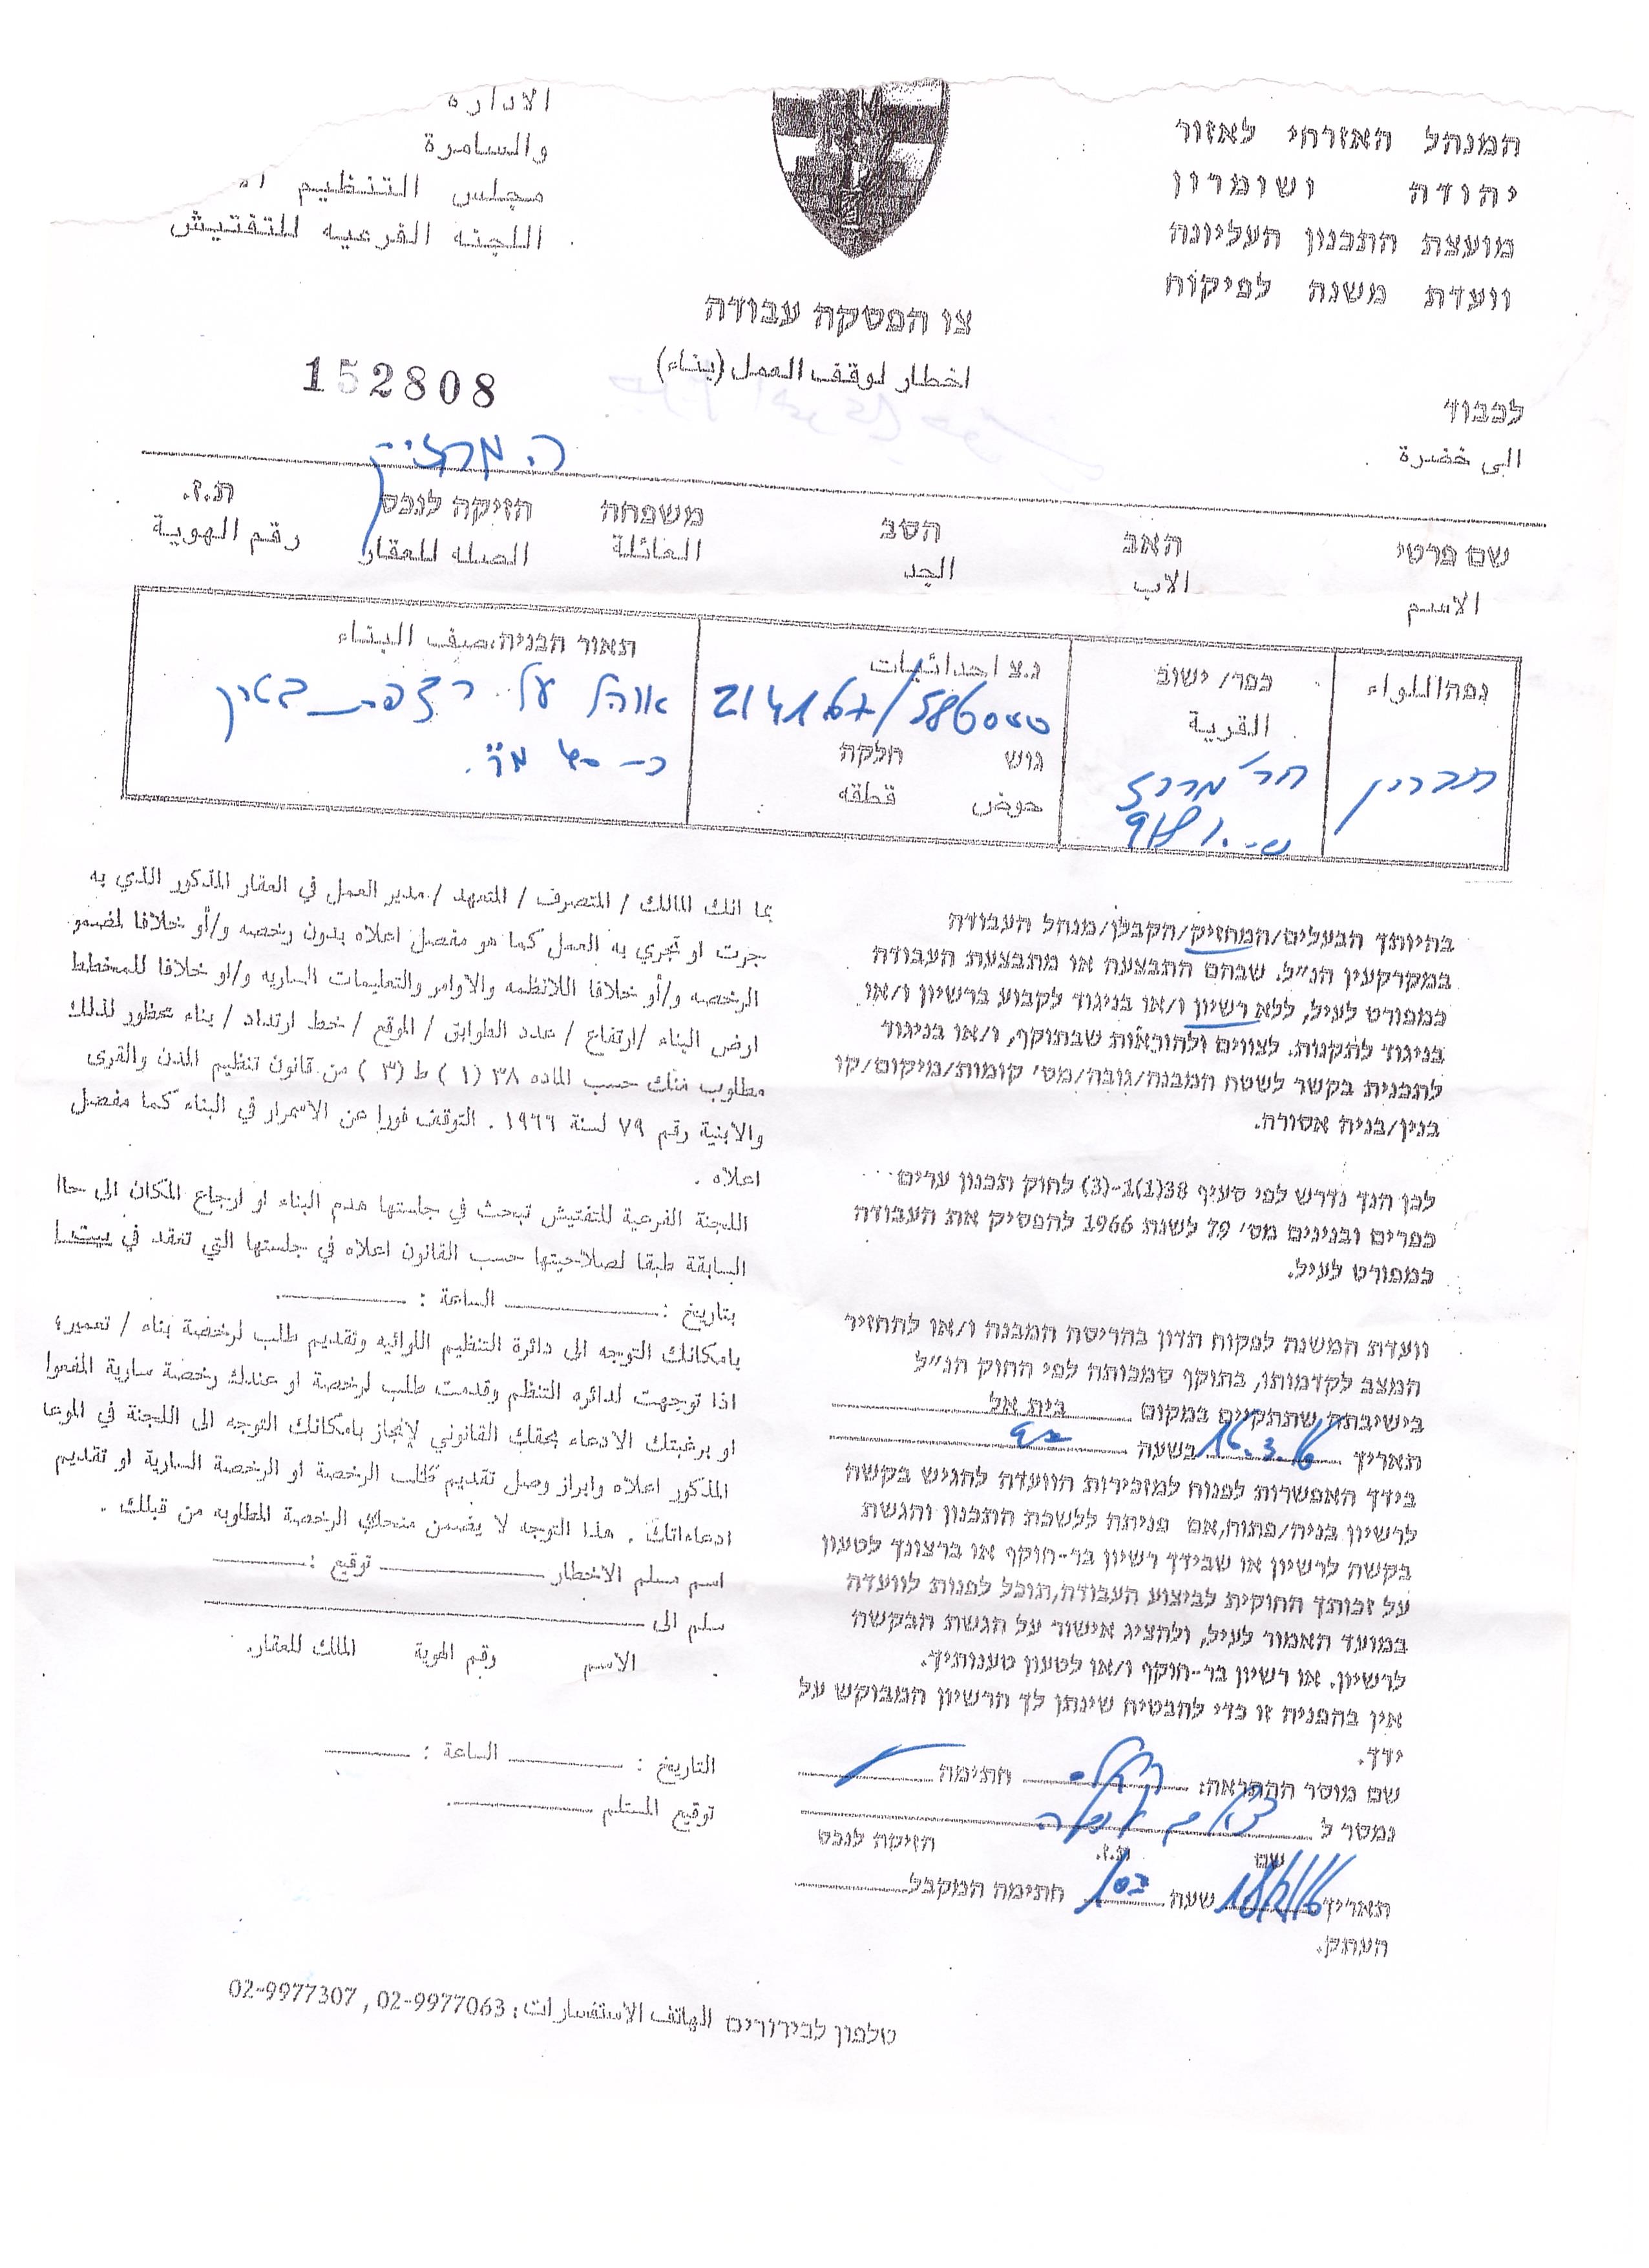 המנהל האזרחי לאזור
יהודה ושומרון
מועצת התכנון העליונה
וועדת משנה לפיקוח
الاداره
والسامرة
مجلس التنظيم
اللجنه الفرعيه للتفتيش
צו הפסקה עבודה
اخطار لوقف العمل (بناء)
152808
לכבוד
الى حضرة
ה. מחזיק
שם פרטי האב הסב משפחה הזיקה לנכס ת.ז.
الاسم الاب الجد العائلة الصله للعقار رقم الهوية
נפה/اللواء
חברון
כפר/ישוב
القرية
חר' מרכז
ש.
נ.צ احداثيات
גוש חלקה
حوض قطقه
תאור הבניה/صيف البناء
אוהל על רצפת בטון
כ- 40 מ"ר.
בהיותך הבעלים/המחזיק/הקבלן/מנהל העבודה
במקרקעין הנ״ל. שבהם התבצעה או מתבצעת העבודה
כמפורט לעיל, ללא רשיון ו/או בניגוד לקבוע ברשיון ו/או
בניגוד לתקנות. לצווים ולהוראות שבתוקף, ו/או בניגוד
לתכנית בקשר לשטח המבנה/גובה/מס׳ קומות/מיקום/קו
בנין/בניה אסורה.
לכן הנך נדרש לפי סעיף 38(1)1-(3) לחוק תכנון ערים
כפרים ובנינים מס׳ 79 לשנת 1966 להפסיק את העבודה
כמפורט לעיל.
וועדת המשנה לפקוח תדון בהריסת המבנה ו/או להחזיר
המצב לקדמותו, בתוקף סמכותה לפי החוק הנ״ל
בישיבתה שתתקיים במקום בית אל
תאריך 16.3.16 בשעה
בידך האפשרות לפנות למזכירות הוועדה להגיש בקשה
לרשיון בניה/פתוח,אם פניתה ללשכת התכנון והגשת
בקשה לרשיון או שבידך רשיון בר-תוקף או ברצונך לטעון
על זכותך החוקית לביצוע העבודה,תוכל לפנות לוועדה
במועד האמור לעיל, ולהציג אישור על הגשת הבקשה
לרשיון. או רשיון בר-תוקף ו/או לטעון טענותיך.
אין בהפניה זו כדי להבטיח שינתן לך הרשיון המבוקש על
ידך.
שם מוסר ההתראה: חתימה
נמסר ל
שם ת.ז. הזיקה לנכס
תאריך שעה חתימה המקבל
העתק.
بما انك المالك / المتصرف / المتعهد / مدير العمل في العقار المذكور الذي به
جرت او تجري به العمل كما هو مفصل اعلاه بدون رخصه و/أو خلافا لمضمو
الرخصه و/أو خلافا اللانظمه والاوامر والتعليمات الساريه و/او خلافا للمخطط
ارض البناء /ارتفاع / عدد الطوابق / الموقع / خط ارتداد / بناء محظور لذلك
مطلوب منك حسب الماده ٣٨ (١ ) ط (٣ ) من قانون تنظيم المدن والقرى
والابنية رقم ٧٩ لسنة ١٩٦٦ . التوقف فورا عن الاستمرار في البناء كما مفصل
اعلاه .
اللجنة الفرعية للتفتيش تبحث في جلستها هدم البناء او ارجاع المكان الى حاا
السابقة طبقا لصلاحيتها حسب القانون اعلاه في جلستها التي تعقد في بيت ا
بتاريخ : الساعة :
بامكانك التوجه الى دائرة التنظيم اللوائيه وتقديم طلب لرخصة بناء / تعمير؛
اذا توجهت لدائره التنظم وقدمت طلب لرخصة او عندك رخصة سارية المفعوا
او برغبتك الادعاء بحقك القانوني لإنجاز بامكانك التوجه الى اللجنة في الموعا
المذكور اعلاه وابراز وصل تقديم طلب الرخصة او الرخصة السارية او تقديم
ادعاءاتك . هذا التوجه لا يضمن منحك الرخصة المطلوبه من قبلك .
اسم مسلم الاخطار توقيع :
سلم الى
الاسم رقم الهوية المالك للعقار.
التاريخ : الساعة :
توقيع المستلم
טלפון לבירורים الهاتف الاستفسارات: 02-9977063 , 02-9977307